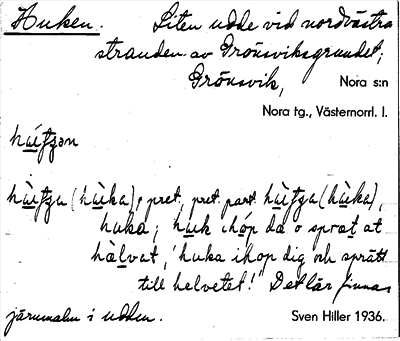 Huken. Liten udde vid nordvästra
stranden av Grönsviksgrundet,
Grönsvik, Nora s:n
Nora tg., Västernorrl. l.
hútzən
hùtza (hùka), pret., pret. part. hùtza (hùka),
huka; huk ihóp da o sprat at
hàlvat, 'huka ihop dig och sprätt
till helvetet!' Det lär finnas
järnmalm i udden. Sven Hiller 1936.